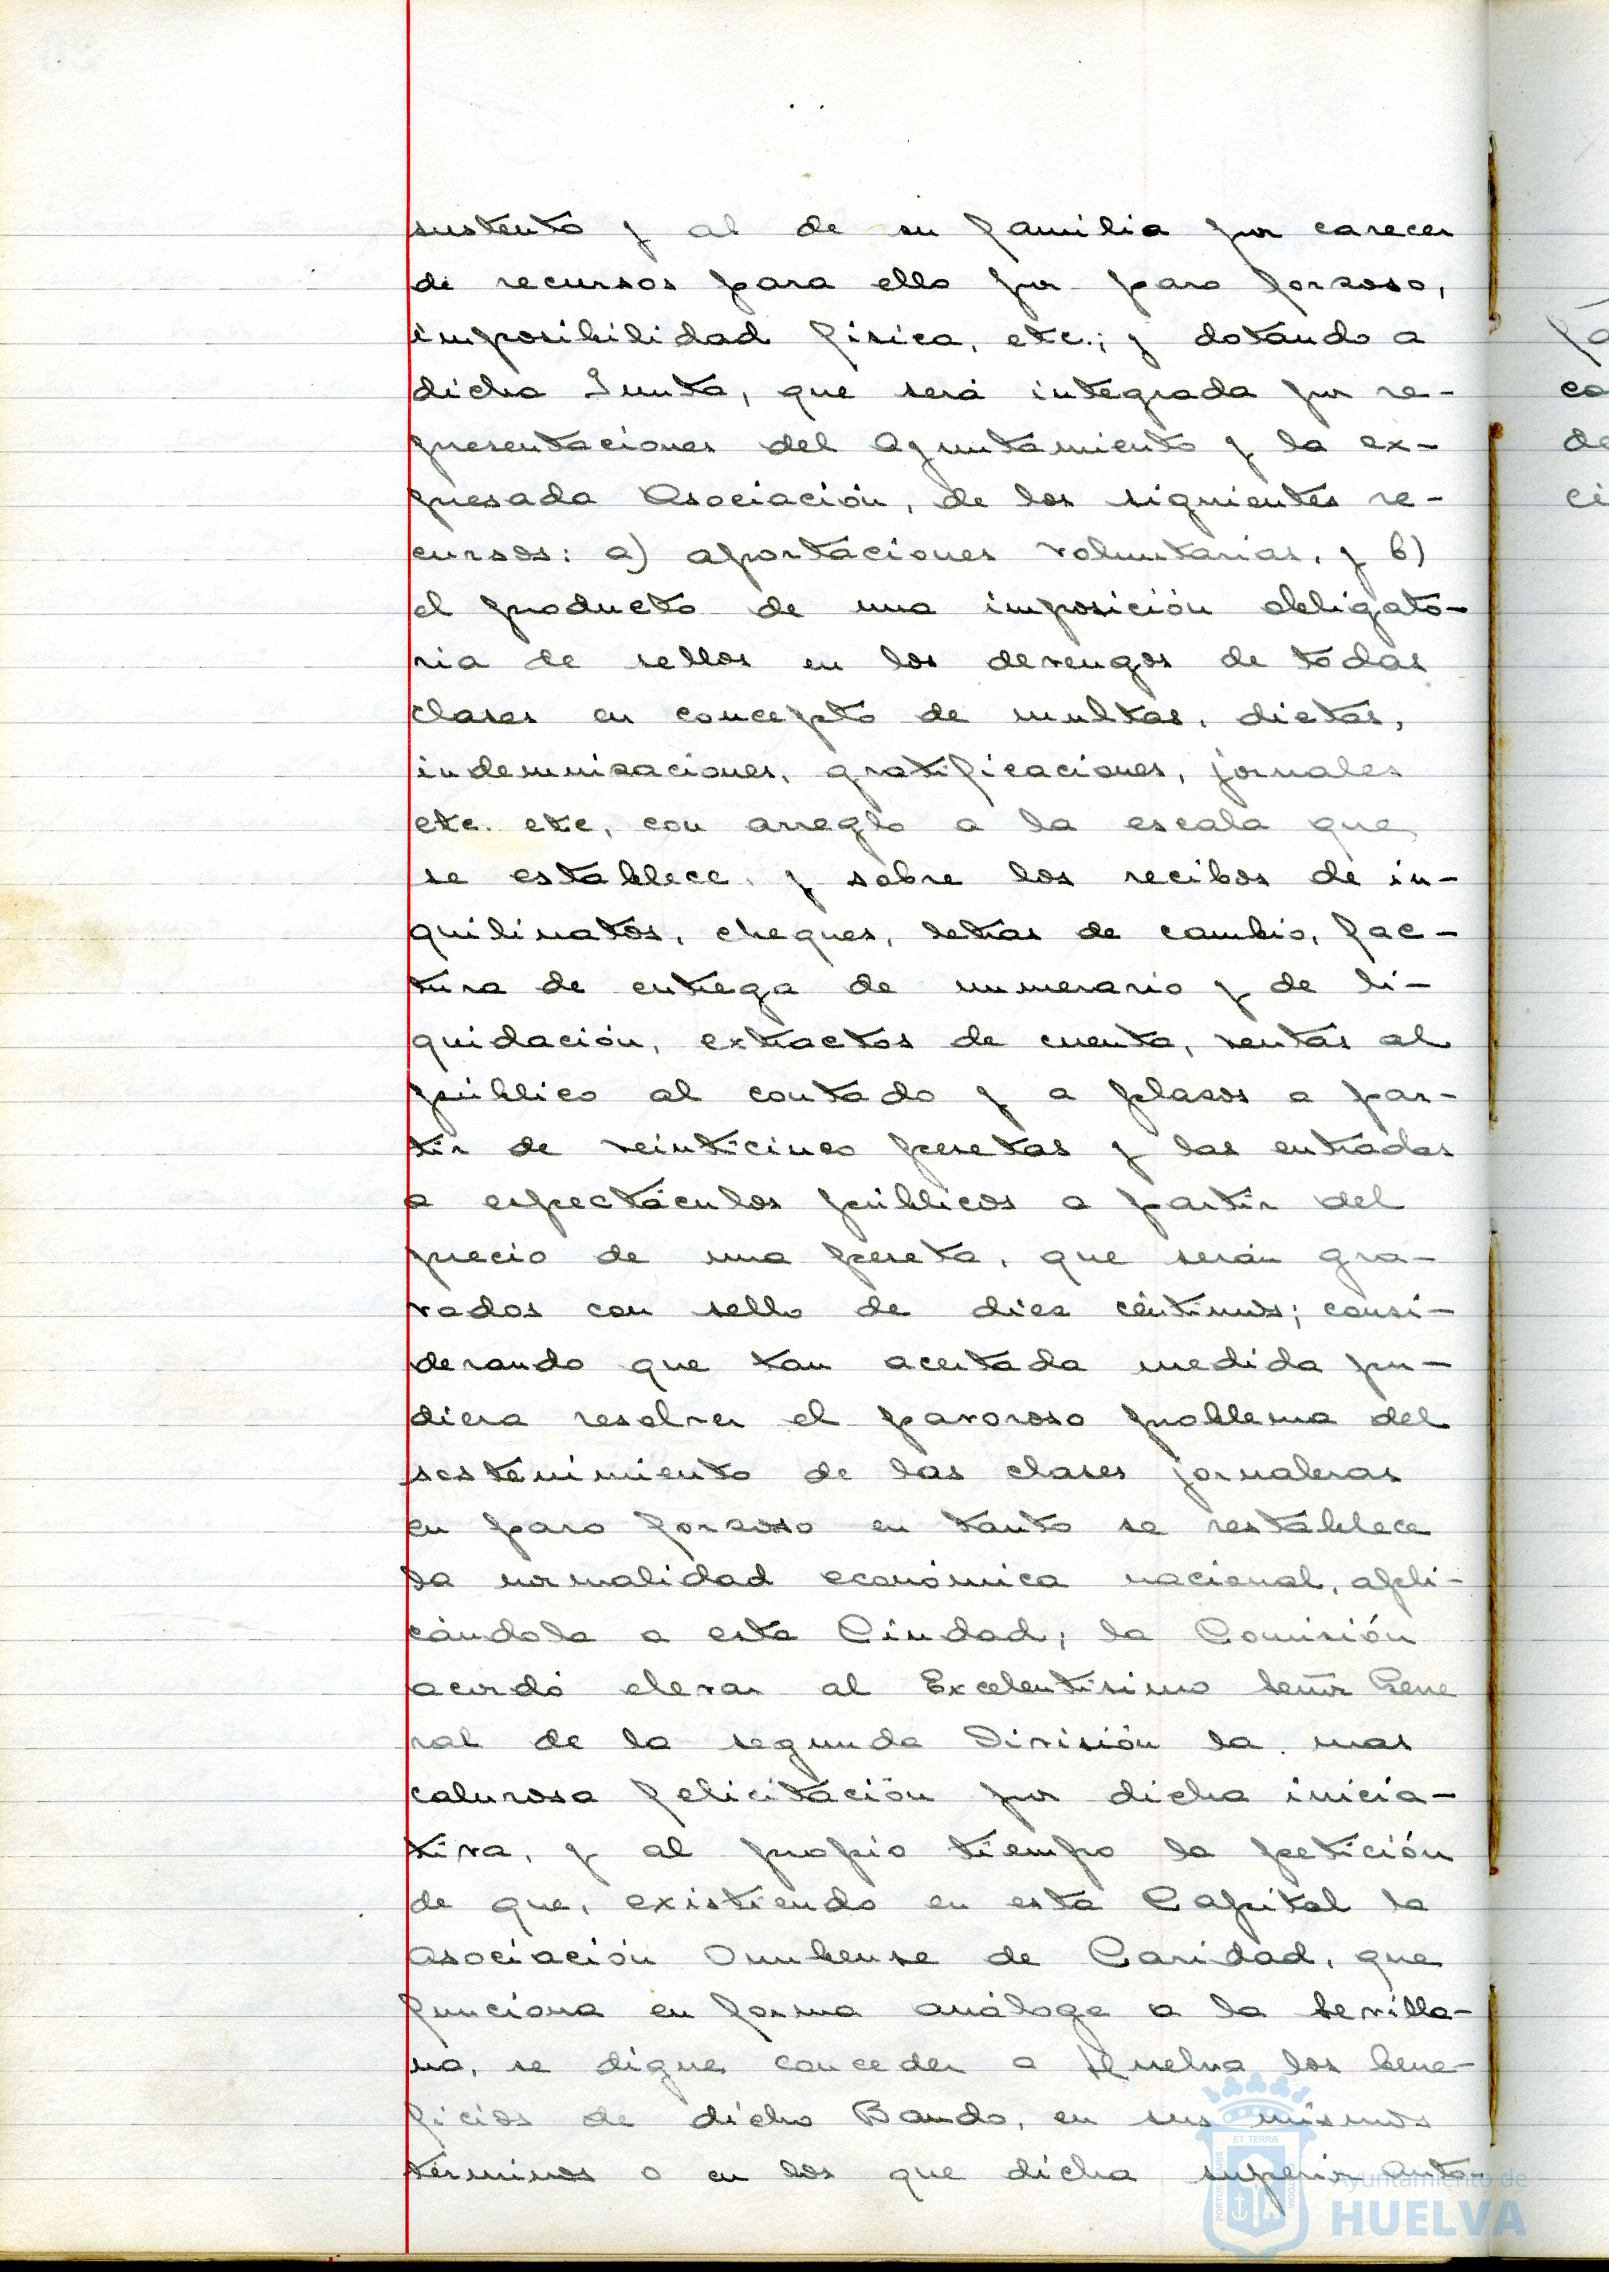 sustento y al de su familia por carecer
de recursos para ello por paro forzoso,
imposibilidad física, etc.; y dotando a
dicha Junta, que será integrada por re-
presentaciones del Ayuntamiento y la ex-
presada Asociación, de los siguientes re-
cursos: a) aportaciones voluntarias, y b)
el producto de una imposición obligato-
ria de sellos en los devengos de todas
clases en concepto de multas, dietas,
indemnizaciones, gratificaciones, jornales
etc. etc, con arreglo a la escala que
se establece, y sobre los recibos de in-
quilinatos, cheques, letras de cambio, fac-
tura de entrega de numerario y de li-
quidación, extractos de cuenta, ventas al
público al contado y a plazos a par-
tir de veinticinco pesetas y las entradas
a espectáculos públicos a partir del
precio de una peseta, que serán gra-
vados con sello de diez céntimos; consi-
derando que tan acertada medida pu-
diera resolver el pavoroso problema del
sostenimiento de las clases jornaleras
en paro forzoso en tanto se restablece
la normalidad económica nacional, apli-
cándola a esta Ciudad; la Comisión
acordó elevar al Excelentísimo Señor Gene
ral de la segunda División la mas
calurosa felicitación por dicha inicia-
tiva, y al propio tiempo la petición
de que, existiendo en esta Capital la
Asociación Onubense de Caridad, que
funciona en forma análoga a la Sevilla-
na, se digne conceder a Huelva los bene-
ficios de dicho Bando, en sus mismos
términos o en los que dicha superior auto-
Ayuntamiento de
HUELVA
ET TERRÆ
PORTUS MARIS
CUSTODIA
fa
co
de
ci